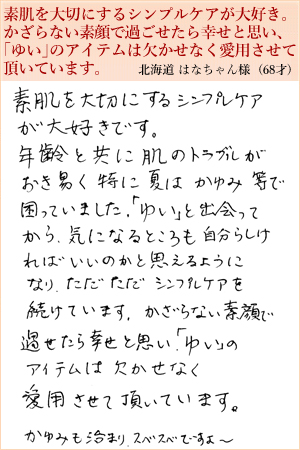 素肌を大切にするシンプルケアが大好き。
かざらない素顔で過ごせたら幸せと思い、
「ゆい」のアイテムは欠かせなく愛用させて
頂いています。 北海道 はなちゃん様（68才）
素肌を大切にするシンプルケア
が大好きです。
年齢と共に肌のトラブルが
おき易く特に夏はかゆみ等で
困っていました。「ゆい」と出会って
から、気になるところも自分らしけ
ればいいのかと思えるように
なり、ただただシンプルケアを
続けています。かざらない素顔で
過せたら幸せと思い、「ゆい」の
アイテムは欠かせなく
愛用させて頂いています。
かゆみも治まり、スベスベですよ〜